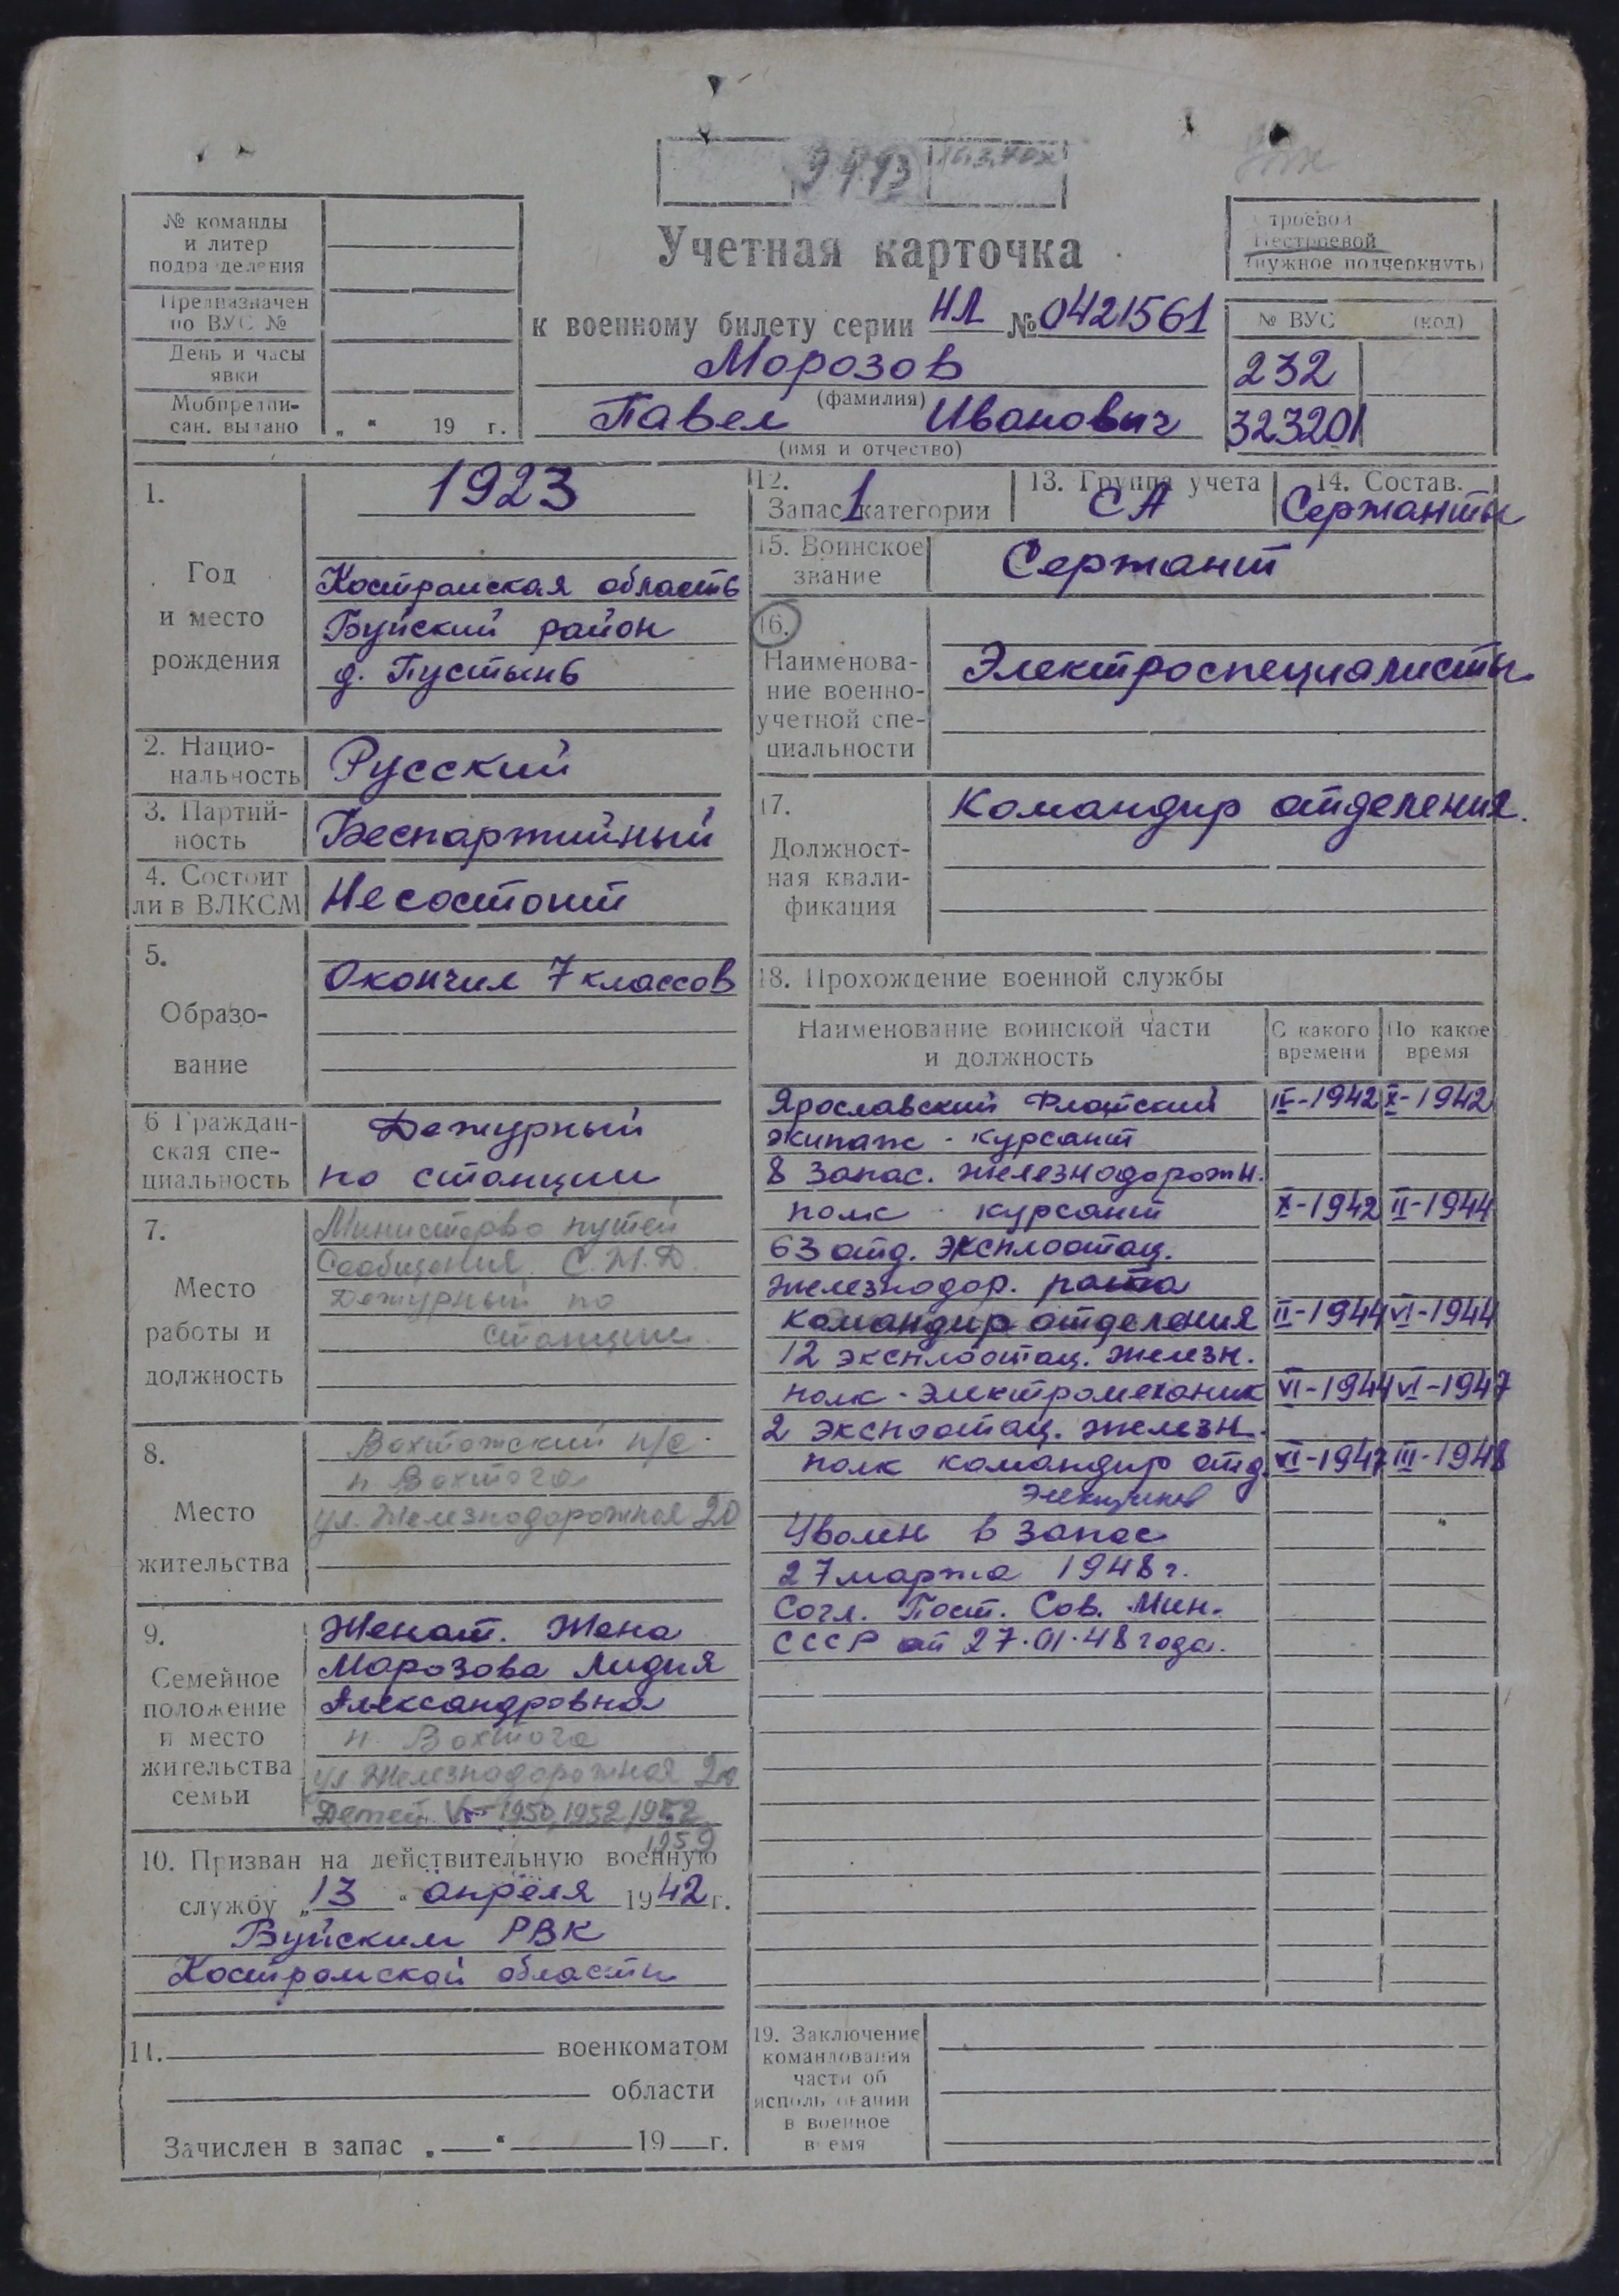 9493
№ команды
и литер
подразделения
Предназначен
по ВУС №
День и часы
явки
Мобпредпи-
сан. выдано
„ “ 19 г.
Учетная карточка
к военному билету серии НЛ № 0421561
Морозов
(фамилия)
Павел Иванович
(имя и отчество)
Строевой
Нестроевой
(нужное подчеркнуть)
№ ВУС (код)
232
323201
1.
Год
и место
рождения
1923
Костромская область
Буйский район
д. Пустынь
2. Нацио-
нальность
Русский
3. Партий-
ность
Беспартийный
4. Состоит
ли в ВЛКСМ
Не состоит
5.
Образо-
вание
Окончил 7 классов
6 Граждан-
ская спе-
циальность
Дежурный
по станции
7.
Место
работы и
должность
Министерство путей
Сообщения. С.Ж.Д.
Дежурный по
станции.
8.
Место
жительства
Вохтожский п/с
п. Вохтога
ул. Железнодорожная 20
9.
Семейное
положение
и место
жительства
семьи
Женат. Жена
Морозова Лидия
Александровна
п. Вохтога
ул Железнодорожная 20
Детей 1950, 1952
1959
10. Призван на действительную военную
службу „13“ апреля 1942 г.
Буйским РВК
Костромской области
11. военкоматом
области
Зачислен в запас „ “ 19 г.
12.
Запас 1 категории
13. Группа учета
СА
14. Состав.
Сержанты
15. Воинское
звание
Сержант
16.
Наименова-
ние военно-
учетной спе-
циальности
Электроспециалисты
17.
Должност-
ная квали-
фикация
Командир отделения.
18. Прохождение военной службы
Наименование воинской части
и должность
С какого
времени
По какое
время
Ярославский Флотский IV-1942 X-1942
экипаж - курсант
8 запас. железнодорожн.
полк - курсант X-1942 II-1944
63 отд. эксплоатац.
железнодор. рота
командир отделения II-1944 VI-1944
12 эксплоатац. железн.
полк - электромеханик VI-1944 VI-1947
2 экспоатац. железн.
полк командир отд. VI-1947 III-1948
Уволен в запас
27 марта 1948 г.
Согл. Пост. Сов. Мин.
СССР от 27.01.48 года.
19. Заключение
командования
части об
использовании
в военное
время